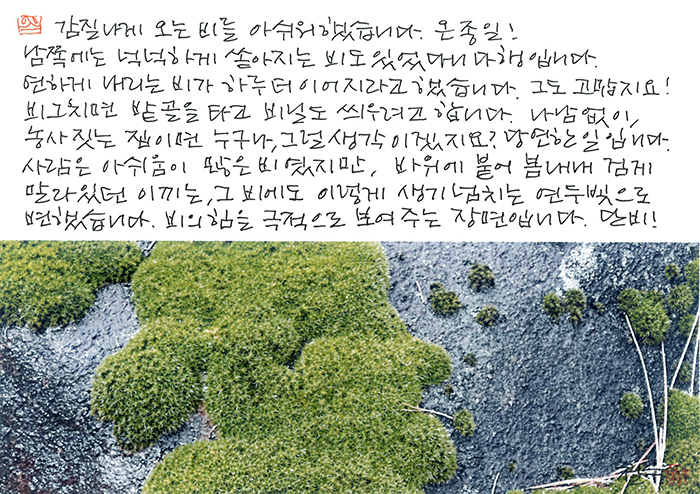 감질나게 오는 비를 아쉬워했습니다. 온종일!
남쪽에는 넉넉하게 쏟아지는 비도 있었다니 다행입니다.
연하게 내리는 비가 하루 더 이어지라고 했습니다. 그도 고맙지요!
비그치면 밭골을 타고 비닐도 씌우려고 합니다. 나남없이,
농사짓는 집이면 누구나, 그럴 생각이겠지요? 당연한 일입니다.
사람은 아쉬움이 많은 비였지만, 바위에 붙어 봄내내 검게
말라있던 이끼는, 그 비에도 이렇게 생기 넘치는 연두빛으로
변했습니다. 비의 힘을 극적으로 보여주는 장면입니다. 단비!